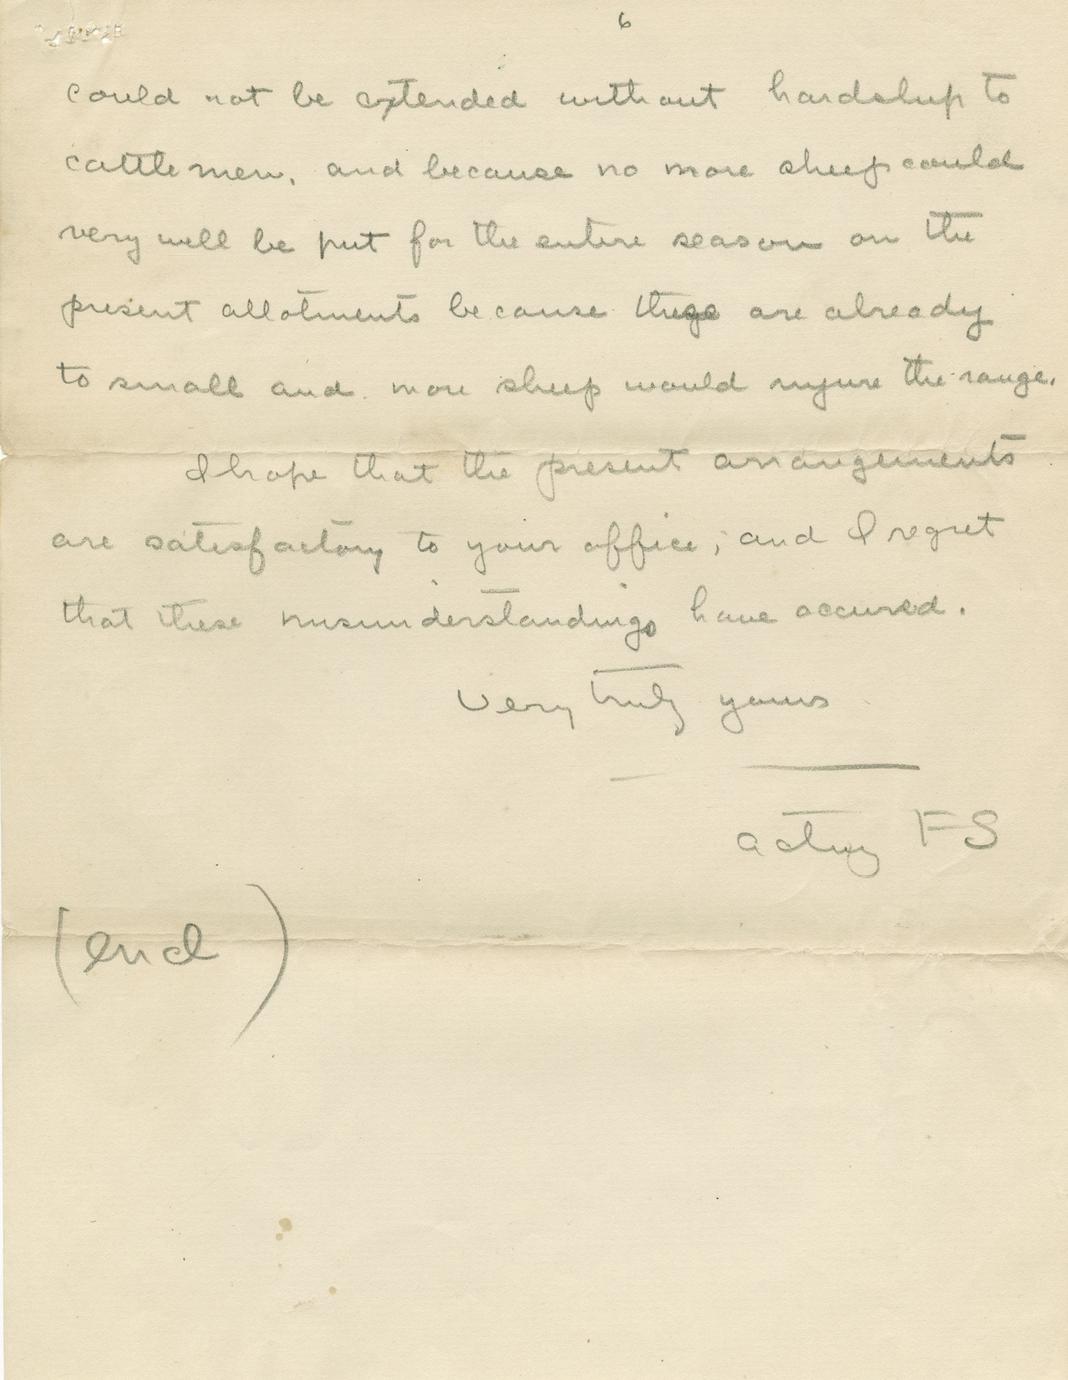 6
could not be extended without hardship to
cattlemen, and because no more sheep could
very well be put for the entire season on the
present allotments because these are already
to small and more sheep would injure the range.
I hope that the present arrangements
are satisfactory to your office; and I regret
that these misunderstandings have occured.
Very truly yours
acting FS
(end)